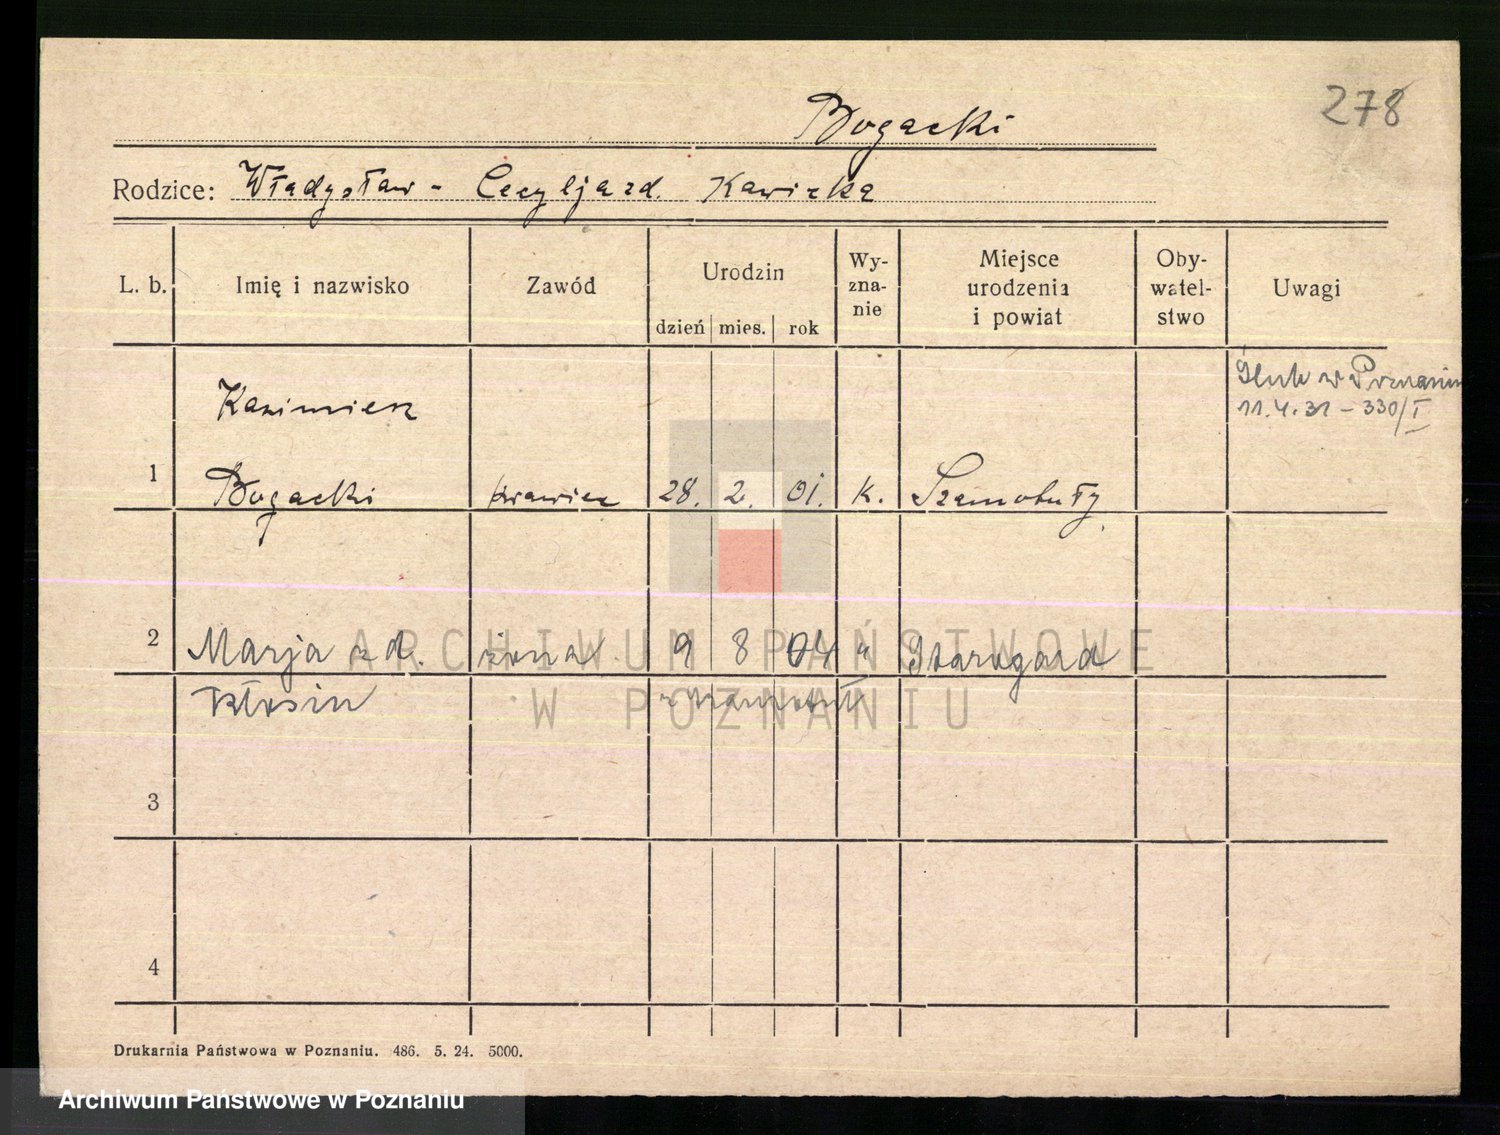 278
Bogacki
Rodzice: Władysław - Cecylja zd. Kawicka
L. b. Imię i nazwisko Zawód Urodzin dzień mies. rok Wy-zna-nie Miejsce urodzenia i powiat Oby-watel-stwo Uwagi
Ślub w Poznaniu
11.4.31 - 330/I
Kazimierz
1 Bogacki krawiec 28. 2. 01. k. Szamotuły
2 Marja zd. żona 9 8 04 " Starogard
Kłosin
3
4
Drukarnia Państwowa w Poznaniu. 486. 5. 24. 5000.
ARCHIWUM PAŃSTWOWE
W POZNANIU
Archiwum Państwowe w Poznaniu